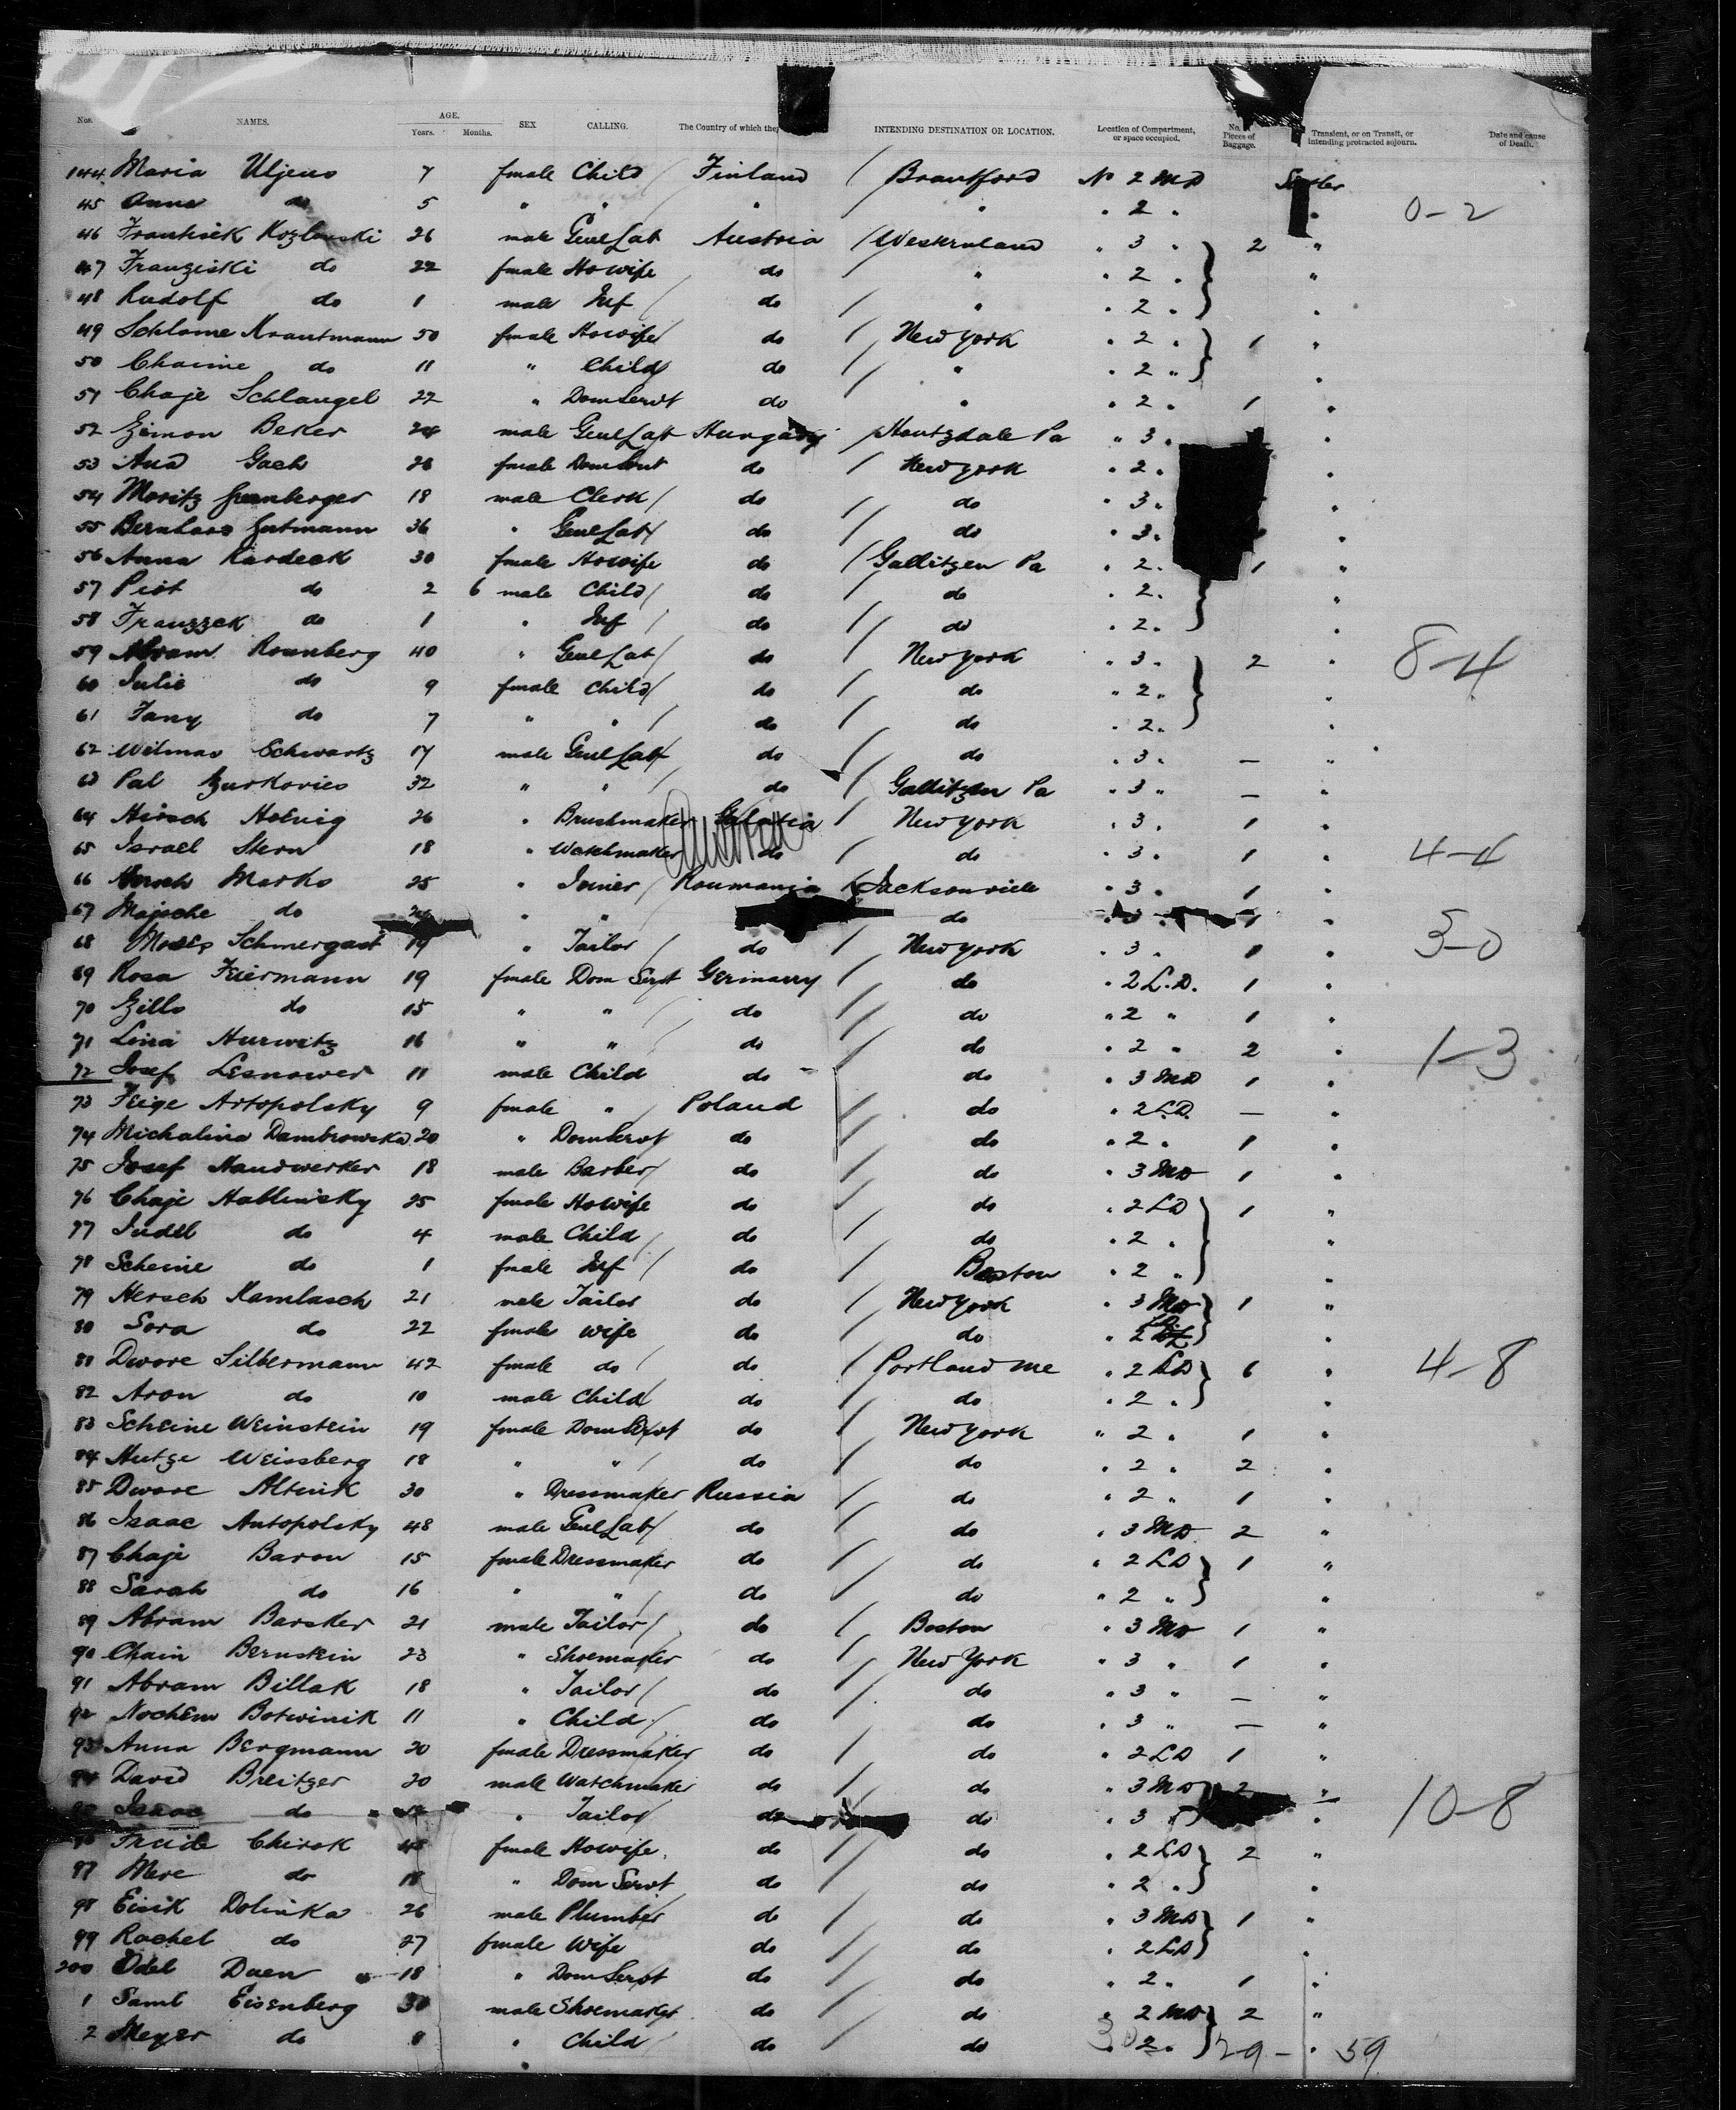 Nos. NAMES. AGE. Years. Months. SEX CALLING. The Country of which they INTENDING DESTINATION OR LOCATION. Location of Compartment, or space occupied. No. Pieces of Baggage. Transient, or on Transit, or intending protracted sojourn. Date and cause of Death.
144 Maria Uljens 7 female Child / Finland / Brantford No 2 MD
45 Anna do 5 " " " " " 2 " " 0-2
46 Frantisek Kozlowski 26 male Genl Lab Austria / Westernland " 3 " 2 "
47 Franziski do 22 female Howife do " " 2 " "
48 Rudolf do 1 male Inf / do / " " 2 " "
49 Schlome Krautmann 50 female Howife do / New York " 2 " 1 "
50 Chaime do 11 " Child do / " " 2 " "
51 Chaje Schlangel 22 " Dom Servt do / " " 2 " 1 "
52 Zimon Beker 24 male Genl Lab Hungary / Houtzdale Pa " 3 " "
53 And Gach 28 female Dom Servt do / New York " 2 " "
54 Moritz Grunberger 18 male Clerk / do / do " 3 " "
55 Bernhard Gutmann 36 " Genl Lab / do / do " 3 " "
56 Anna Kardeck 30 female Howife do / Gallitzen Pa " 2 " 1 "
57 Piot do 2 6 male Child / do / do " 2 " "
58 Franzzek do 1 " Inf / do / do " 2 " "
59 Abram Rosenberg 40 " Genl Lab / do / New York " 3 " 2 " 8-4
60 Julie do 9 female Child / do / do " 2 " "
61 Fany do 7 " " / do / do " 2 " "
62 Wilmar Schwartz 17 male Genl Lab do / do " 3 " — "
63 Pal Zurkovics 32 " " / do / Gallitzen Pa " 3 " — "
64 Hirsch Holnig 26 " Brushmaker Galatia / New York " 3 " 1 "
65 Israel Stern 18 " Watchmaker do / do " 3 " 1 " 4-4
66 Hersch Marko 25 " Joiner / Roumania / Jacksonville " 3 " 1 "
67 Mojsche do " " do " 3 " 1 "
68 Moses Schmergast 19 " Tailor / do / New York " 3 " 1 " 3-0
69 Rosa Feiermann 19 female Dom Servt Germany / do " 2 L.D. 1 "
70 Zilla do 15 " " / do / do " 2 " 1 "
71 Lina Hurwitz 16 " " / do / do " 2 " 2 " 1-3
72 Josef Lesnower 11 male Child do / do " 3 MD 1 "
73 Feige Artopolsky 9 female " / Poland / do " 2 L.D. — "
74 Michalina Dambrowska 20 " Dom Servt do / do " 2 " 1 "
75 Josef Handwerker 18 male Barber / do / do " 3 MD 1 "
76 Chaje Hablinsky 25 female Howife do / do " 2 LD 1 "
77 Judel do 4 male Child / do / do " 2 " "
78 Scheine do 1 female Inf / do / Boston " 2 " "
79 Hersch Kamlasch 21 male Tailor do / New York " 3 MD 1 "
80 Sora do 22 female Wife do / do " 2 "
81 Dwore Silbermann 42 female do / do / Portland Me " 2 LD 6 " 4-8
82 Aron do 10 male Child do / do " 2 " "
83 Scheine Weinstein 19 female Dom Servt do / New York " 2 " 1 "
84 Hutze Weissberg 18 " " / do / do " 2 " 2 "
85 Dwore Altwik 30 " Dressmaker Russia / do " 2 " 1 "
86 Isaac Antopolsky 48 male Genl Lab / do / do " 3 MD 2 "
87 Chaje Baron 15 female Dressmaker do / do " 2 LD 1 "
88 Sarah do 16 " " / do / do " 2 " "
89 Abram Barsker 21 male Tailor / do / Boston " 3 MD 1 "
90 Chain Bernstein 23 " Shoemaker do / New York " 3 " 1 "
91 Abram Billak 18 " Tailor / do / do " 3 " — "
92 Nochem Botwinik 11 " Child / do / do " 3 " — "
93 Anna Bergmann 20 female Dressmaker do / do " 2 LD 1 "
94 David Breitzer 20 male Watchmaker do / do " 3 MD 2 "
Isaac do " Tailor do do " 3 " " 10-8
Fruide Chirok 48 female Howife do / do " 2 LD 2 "
97 Mere do 18 " Dom Servt do / do " 2 " "
98 Eisik Dolinka 26 male Plumber do / do " 3 MD 1 "
99 Rachel do 27 female Wife do / do " 2 LD "
200 Odel Duen 18 " Dom Servt do / do " 2 " 1 "
1 Saml Eisenberg 30 male Shoemaker do / do " 2 MD 2 "
2 Meyer do 8 " Child do / do " 2 " "
30 29 - 59